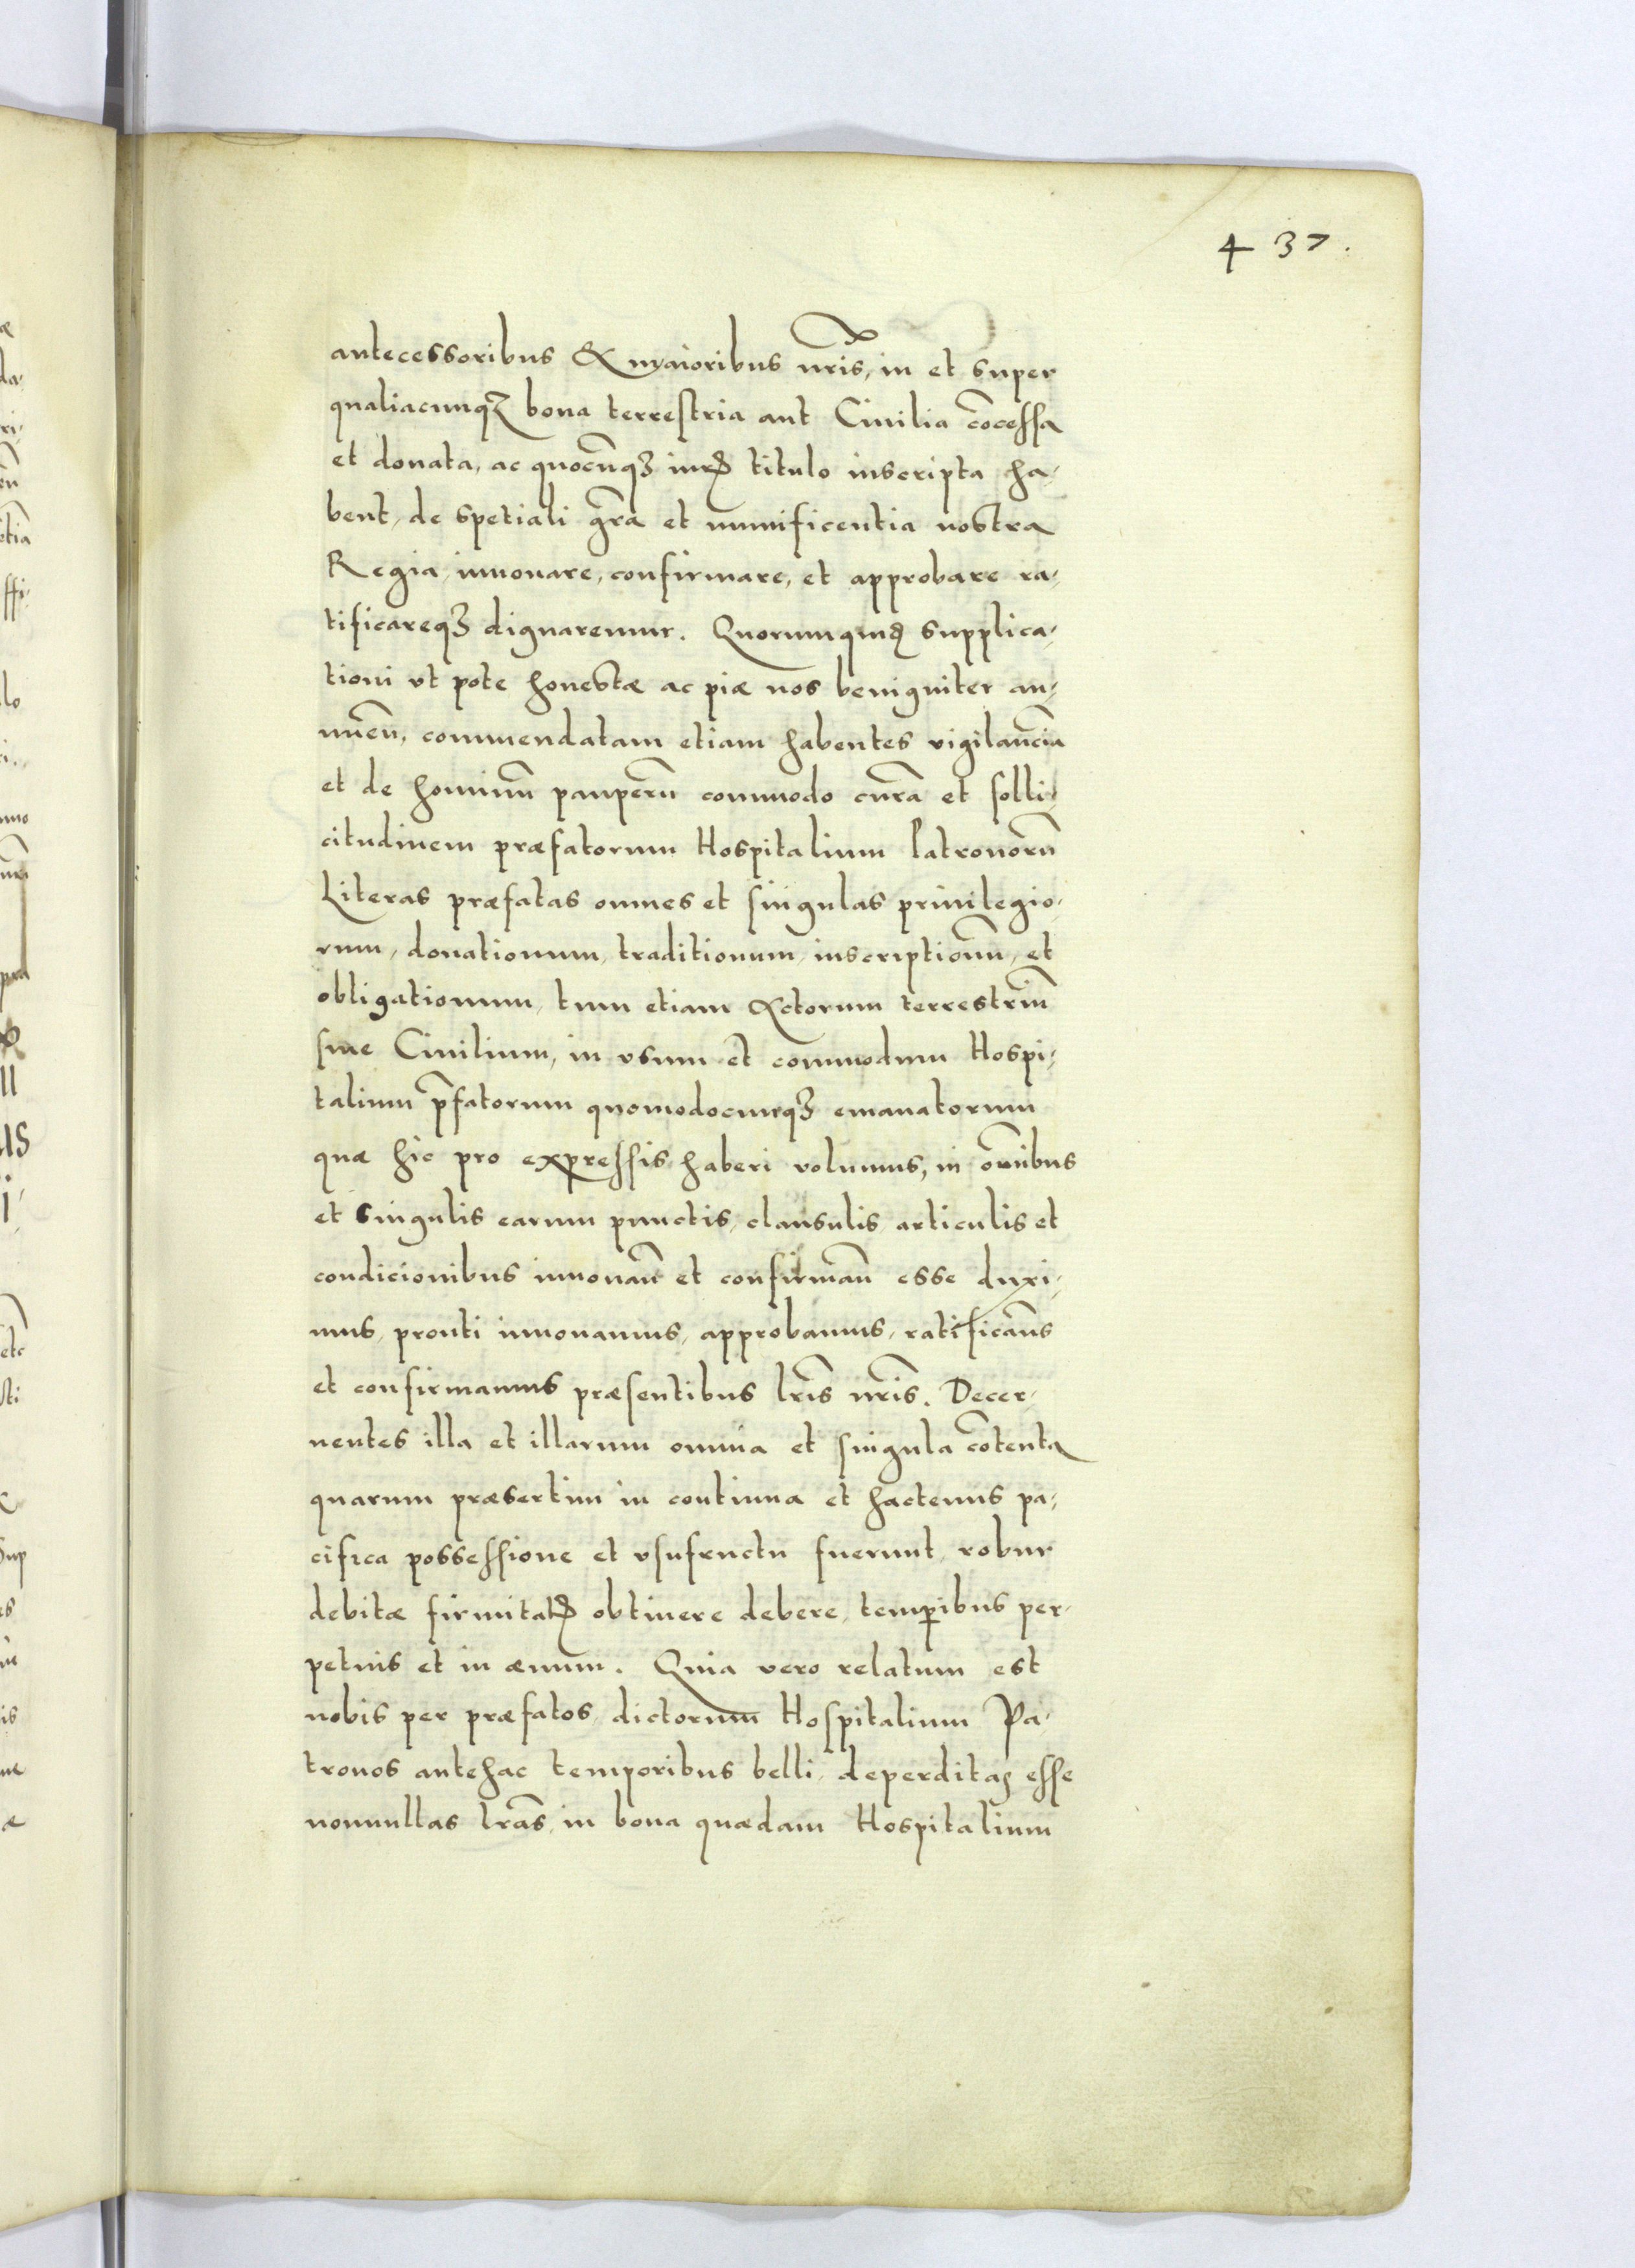 437.
antecessoribus & maioribus nr̃is, in et super
qualiacunqꝫ bona terrestria aut Ciuilia cõcessa
et donata, ac quocũqꝫ iurꝭ titulo inscripta ha-
bent, de spetiali gr̃a et munificentia nostra
Regia, innouare, confirmare, et approbare ra-
tificareqꝫ dignaremur. Quorumquidꝭ supplica-
tioni vt pote honestæ ac piæ nos benigniter an-
nuẽn, commendatam etiam habentes vigilanciã
et de hominũ pauperũ commodo curã et solli-
citudinem præfatorum Hospitalium Patronorũ
Literas præfatas omnes et singulas priuilegio-
rum, donationum, traditionum, inscriptionũ, et
obligationum, tum etiam Actorum terrestriũ
siue Ciuilium, in vsum et commodum Hospi-
talium p̃fatorum quomodocunqꝫ emanatorum
quæ hic pro expressis haberi volumus, in om̃ibus
et singulis earum punctis, clausulis articulis et
condicionibus innouañ et confirmañ esse duxi-
mus, prouti innouamus, approbamus, ratificam̃s
et confirmamus præsentibus lr̃is nr̃is. Decer-
nentes illa et illarum omnia et singula cõtenta
quarum præsertim in continua et hactenus pa-
cifica possessione et vsufructu fuerunt, robur
debitæ firmitatꝭ obtinere debere, temꝑibus per-
petuis et in æuum. Quia vero relatum est
nobis per præfatos dictorum Hospitalium Pa-
tronos antehac temporibus belli, deperditas esse
nonnullas lr̃as, in bona quædam Hospitalium